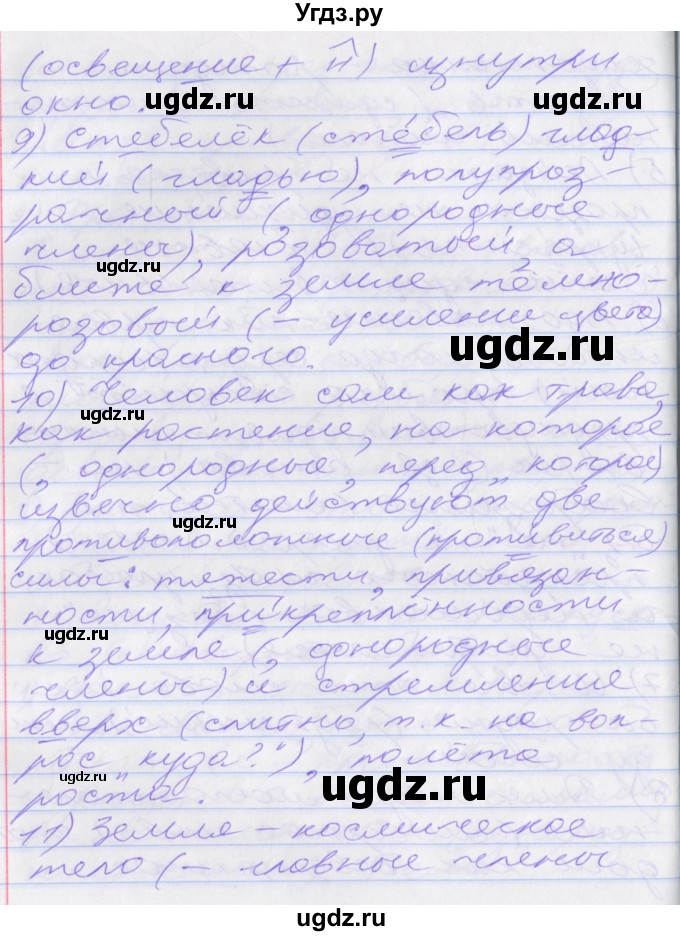 Угдз.ру
(освещение + Н) изнутри
окно.
ugdz.ru ugdz.ru
9) Стебелёк (сте́бель) глад-
кий (гладью), полупроз-
рачный (, однородные
ugdz.ru
члены), розоватый, а
ugdz.ru
ближе к земле тёмно-
розовый (– усиление цвета)
ugdz.ru
ugdz.ru
до красного.
10) Человек сам как трава,
ugdz.ru
как растение, на которое
(, однородные, перед "которое)
извечно действуют две
ugdz.ru
противоположные (противиться)
силы: тяжести, привязан-
ности, прикреплённости
ugdz.ru
к земле (, однородные
члены) и стремление
вверх (слитно, т.к. на воп-
рос "куда?"), полёта
ugdz.ru
роста.
ugdz.ru
11) Земля – космическое
тело (– главные члены
ugdz.ru